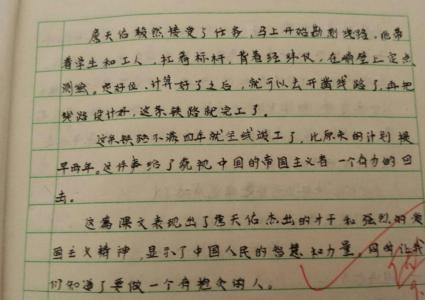 詹天佑毅然接受了任务，马上开始勘测线路，他带
着学生和工人，扛着标杆，背着经纬仪，在峭壁上定点
测绘。定好位，计算好了之后，就可以去开凿线路了，再把
线路设计好，这条铁路就完工了。
这条铁路不满四年就全线竣工了，比原来的计划提
早两年。这件事给了藐视中国的帝国主义者一个有力的回
击。
这篇课文表现出了詹天佑杰出的才干和强烈的爱
国主义精神，显示了中国人民的智慧和力量。同时让我
们知道了要做一个有抱负的人。
优